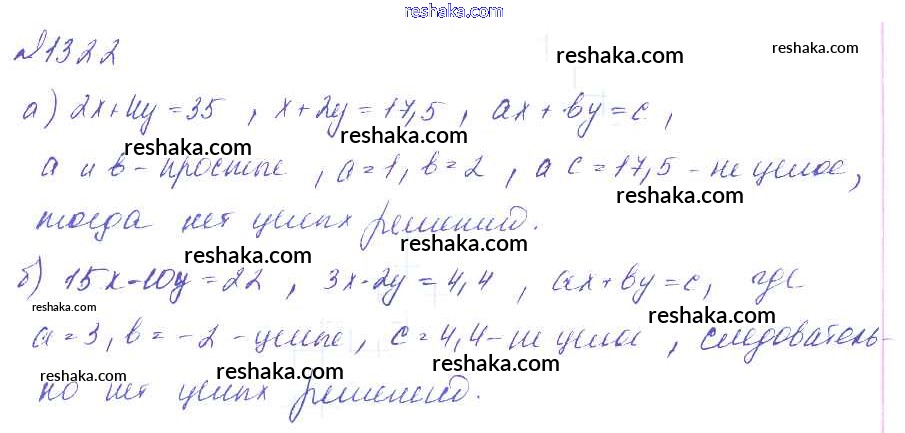 reshaka.com
№1322
reshaka.com reshaka.com
а) 2x+4y=35 , x+2y=17,5 , ax+by=c ,
reshaka.com reshaka.com
а и в-простые , a=1, в=2 , а c=17,5 - не целое,
reshaka.com
тогда нет целых решений.
reshaka.com reshaka.com
б) 15x-10y=22 , 3x-2y=4,4 , ax+by=c, где
reshaka.com reshaka.com
a=3, в=-2 -целые, c=4,4-не целое , следователь-
reshaka.com reshaka.com reshaka.com
но нет целых решений.